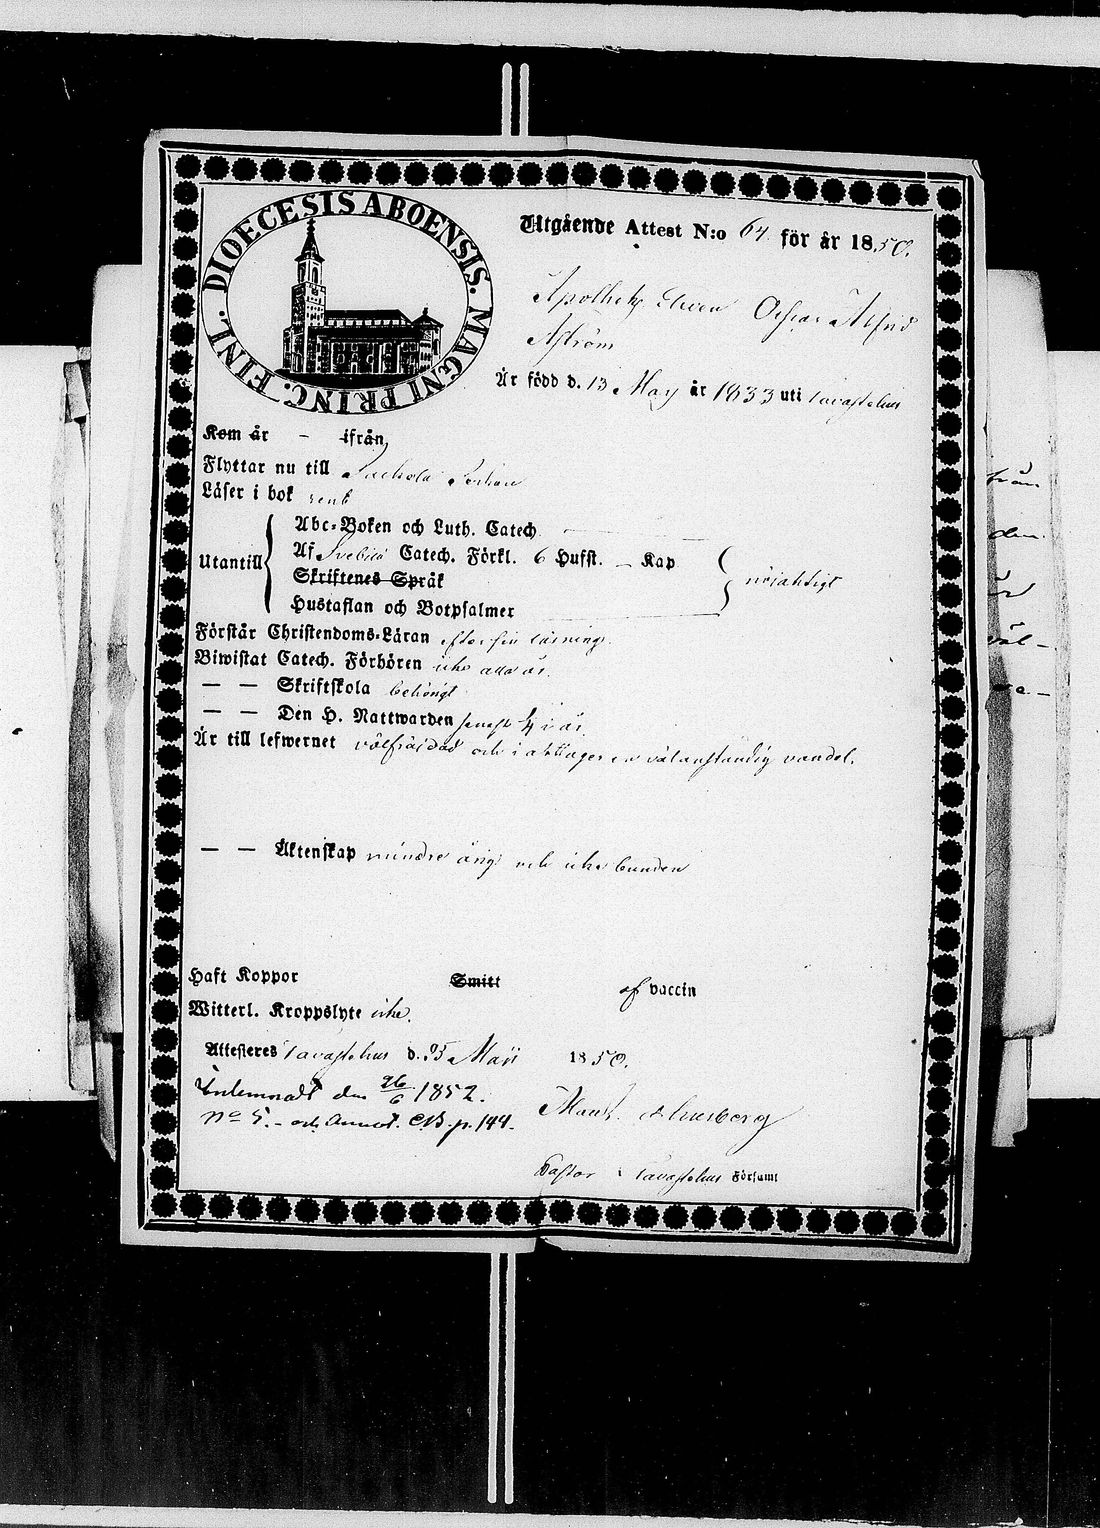 DIOECESIS ABOENSIS. MAGNI PRINC. FINL.
Utgående Attest N:o 64 för år 1850.
Apotheks Eleven Oscar Alfrid
Åström
Är född d. 13 May år 1833 uti Tavastehus
Kom år – ifrån
Flyttar nu till
Läser i bok rent
Abc-Boken och Luth. Catech
Utantill
Af Svebilii Catech. Förkl. 6 Hufst. – Kap
nöjaktigt
Skriftenes Språk
Hustaflan och Botpsalmer
Förstår Christendoms-Läran efter sin läsning.
Biwistat Catech. Förhören icke alla år.
— — Skriftskola behörigt
— — Den H. Nattwarden senast i år.
Är till lefwernet välfräjdad och iakttager en välanständig vandel.
— — Äktenskap minderårig och icke bunden
Haft Koppor Smitt af vaccin
Witterl. Kroppslyte icke.
Attesteres Tavastehus d. Maii 1850.
Inlemnadt den 26/6 1852.
No 5. – och Annot. CB. p. 144.
Pastor i Tavastehus Församl
från
den